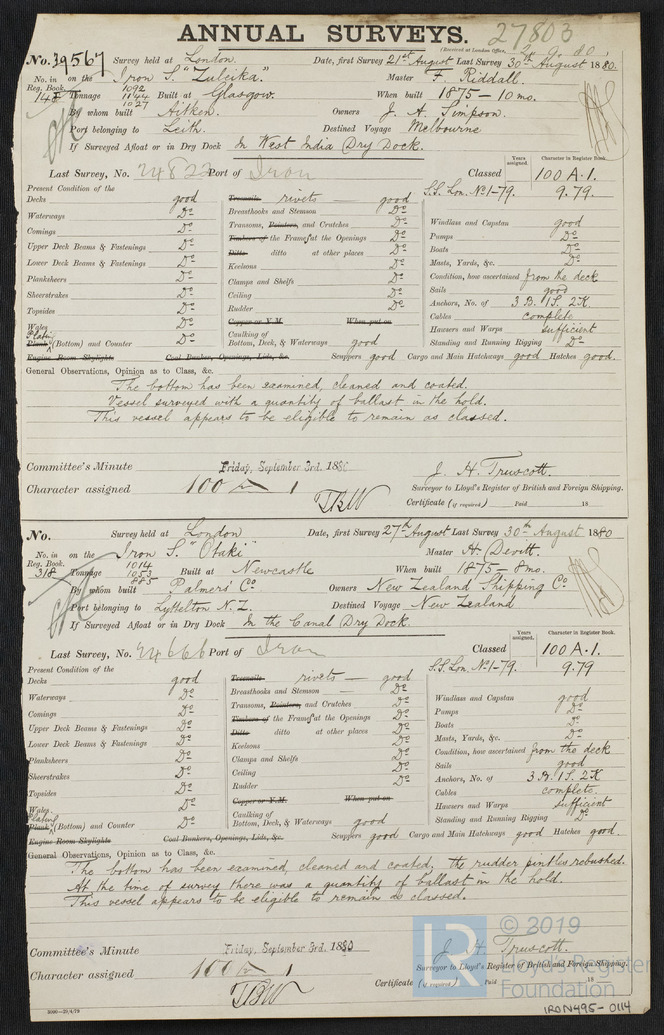 ANNUAL SURVEYS. 27803
(Received at London Office, 2. 9. 80.)
No. 39567 Survey held at London. Date, first Survey 21st August Last Survey 30th August 1880.
No. in on the Iron S. "Zuleika." Master F. Riddall.
Reg. Book. 1092
148 Tonnage 1144 Built at Glasgow. When built 1875 - 10 mo.
1027
By whom built Aitken. Owners J. A. Simpson.
Port belonging to Leith. Destined Voyage Melbourne
If Surveyed Afloat or in Dry Dock In West India Dry Dock.
Years assigned. Character in Register Book.
Last Survey, No. 24822 Port of Iron Classed 100 A.1.
S.S. Lon. No.1-79. 9.79.
Present Condition of the
Decks good Treenails rivets good
Waterways Do Breasthooks and Stemson Do Windlass and Capstan good
Comings Do Transoms, Pointers, and Crutches Do Pumps Do
Upper Deck Beams & Fastenings Do Timbers of the Frame at the Openings Do Boats Do
Lower Deck Beams & Fastenings Do Ditto ditto at other places Do Masts, Yards, &c. Do
Planksheers Do Keelsons Do Condition, how ascertained from the deck
Sheerstrakes Do Clamps and Shelfs Do Sails good
Topsides Do Ceiling Do Anchors, No. of 3 B. 1 S. 2 K.
Wales Do Rudder Do Cables complete
Plating Copper or Y.M. When put on Hawsers and Warps sufficient
Plank (Bottom) and Counter Do Caulking of Bottom, Deck, & Waterways good Standing and Running Rigging Do
Engine Room Skylights Coal Bunker, Openings, Lids, &c. Scuppers good Cargo and Main Hatchways good Hatches good.
General Observations, Opinion as to Class, &c.
The bottom has been examined, cleaned and coated.
Vessel surveyed with a quantity of ballast in the hold.
This vessel appears to be eligible to remain as classed.
Committee's Minute Friday, September 3rd. 1880 J. H. Truscott.
Character assigned 100 A 1 Surveyor to Lloyd's Register of British and Foreign Shipping.
TBW Certificate (if required) Paid 18
No. Survey held at London Date, first Survey 27th August Last Survey 30th August 1880
No. in on the Iron S. "Otaki" Master H. Devitt.
Reg. Book. 1014
318 Tonnage 1053 Built at Newcastle When built 1875 - 8 mo.
885
By whom built Palmers' Co. Owners New Zealand Shipping Co.
Port belonging to Lyttelton N.Z. Destined Voyage New Zealand
If Surveyed Afloat or in Dry Dock In the Canal Dry Dock.
Years assigned. Character in Register Book.
Last Survey, No. 24666 Port of Iron Classed 100 A.1.
S.S. Lon. No.1-79. 9.79
Present Condition of the
Decks good Treenails rivets good
Waterways Do Breasthooks and Stemson Do Windlass and Capstan good
Comings Do Transoms, Pointers, and Crutches Do Pumps Do
Upper Deck Beams & Fastenings Do Timbers of the Frame at the Openings Do Boats Do
Lower Deck Beams & Fastenings Do Ditto ditto at other places Do Masts, Yards, &c. Do
Planksheers Do Keelsons Do Condition, how ascertained from the deck
Sheerstrakes Do Clamps and Shelfs Do Sails good
Topsides Do Ceiling Do Anchors, No. of 3 B. 1 S. 2 K
Wales Do Rudder Do Cables complete.
Plating Copper or Y.M. When put on Hawsers and Warps sufficient
Plank (Bottom) and Counter Do Caulking of Bottom, Deck, & Waterways good Standing and Running Rigging Do
Engine Room Skylights Coal Bunkers, Openings, Lids, &c. Scuppers good Cargo and Main Hatchways good Hatches good.
General Observations, Opinion as to Class, &c.
The bottom has been examined, cleaned and coated, the rudder pintles rebushed.
At the time of survey there was a quantity of ballast in the hold.
This vessel appears to be eligible to remain as classed.
Committee's Minute Friday, September 3rd. 1880 J. H. Truscott.
Character assigned 100 A 1 Surveyor to Lloyd's Register of British and Foreign Shipping.
TBW Certificate (if required) Paid 18
© 2019
LR Lloyd's Register
Foundation
IRON495-0114